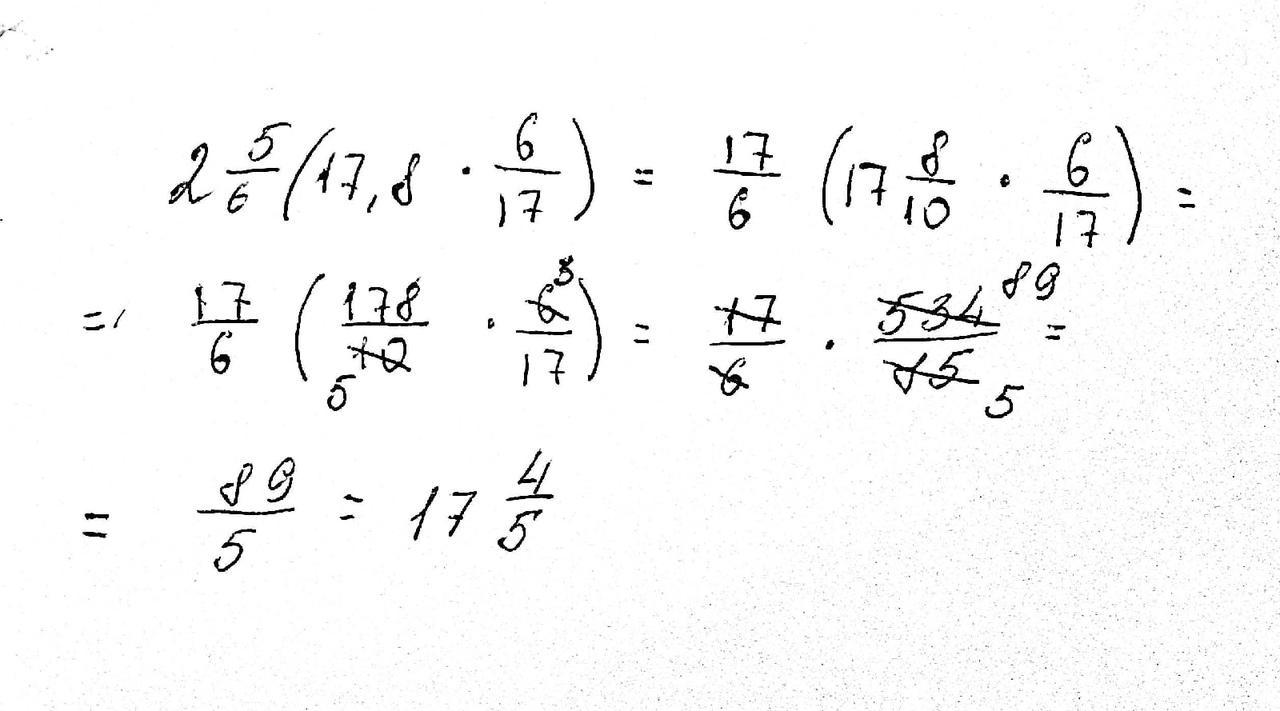 2 5/6 (17,8 · 6/17) = 17/6 (17 8/10 · 6/17) =
= 17/6 (178/10 5 · 6/17 3) = 17/6 · 534/85 89 5 =
= 89/5 = 17 4/5